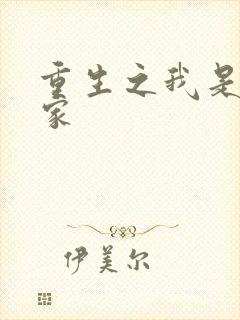 重生之我是
家
伊美尔